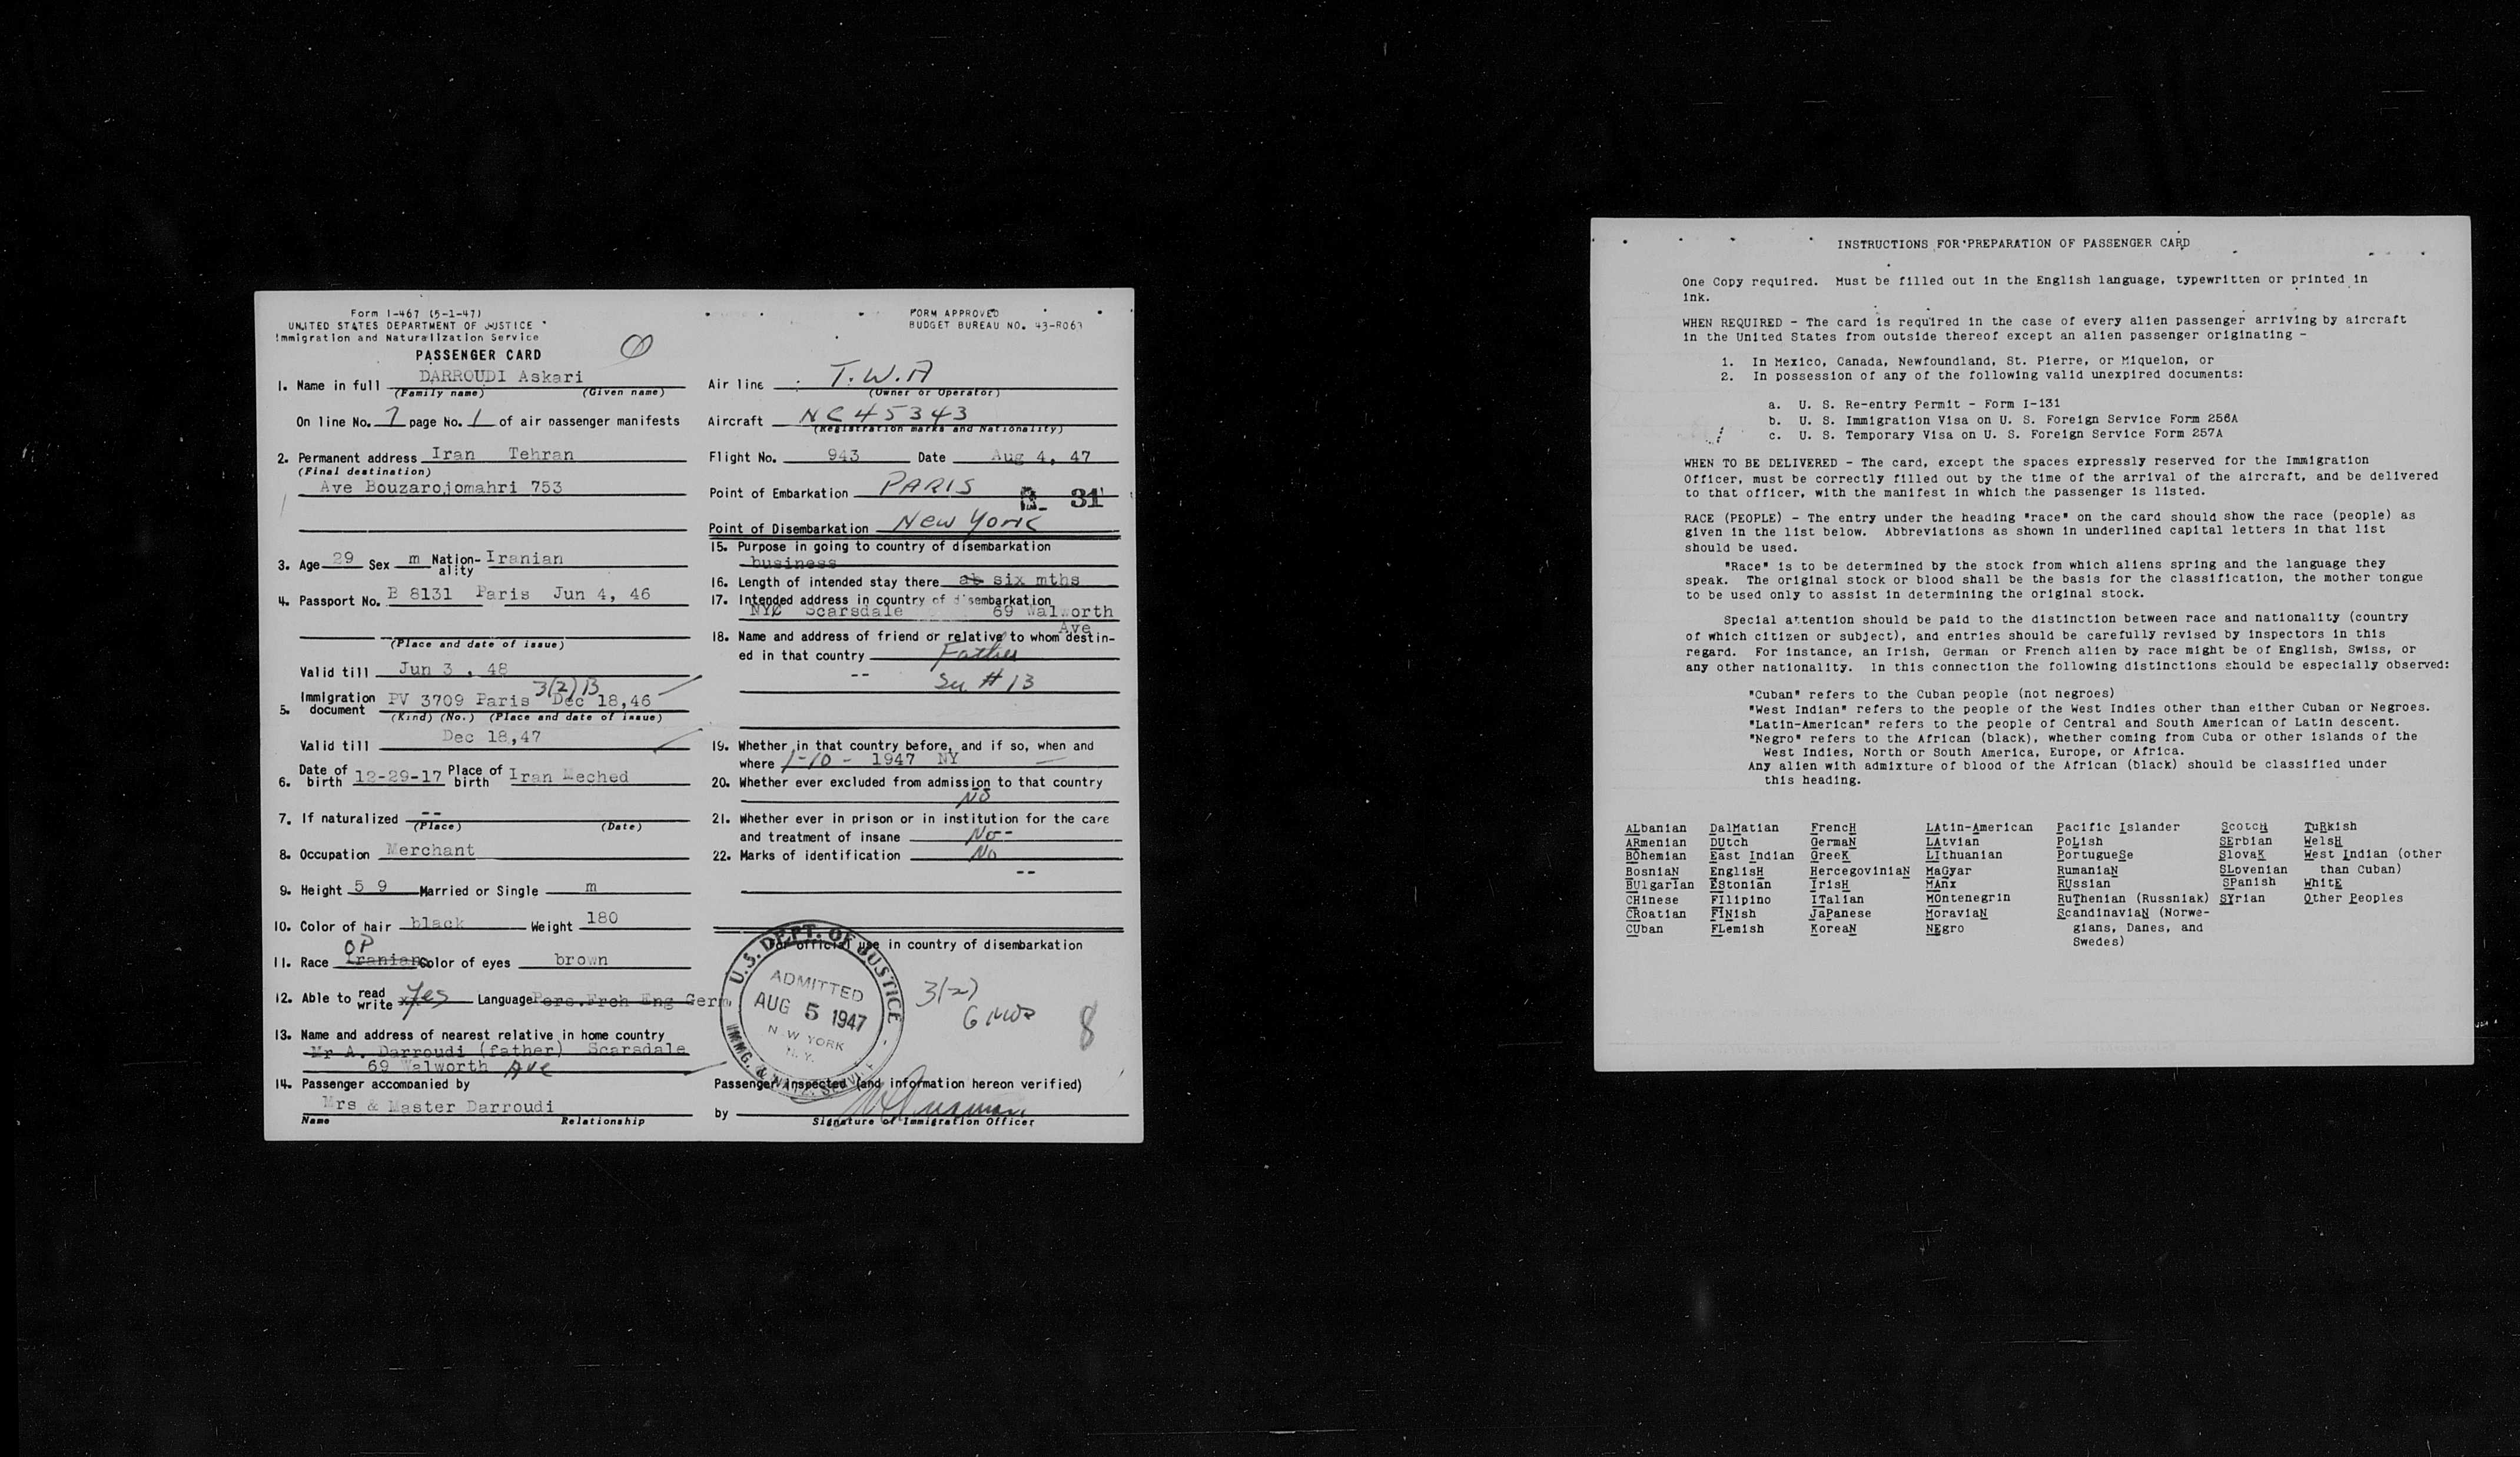 Form I-467 (5-1-47)
UNITED STATES DEPARTMENT OF JUSTICE
Immigration and Naturalization Service
PASSENGER CARD
1. Name in full DARROUDI Askari
(Family name) (Given name)
On line No. 7 page No. 1 of air passenger manifests
2. Permanent address Iran Tehran
(Final destination)
Ave Bouzarojomahri 753
3. Age 29 Sex m Nation-ality Iranian
4. Passport No. B 8131 Paris Jun 4, 46
(Place and date of issue)
Valid till Jun 3, 48
3(2)B
5. Immigration document PV 3709 Paris Dec 18,46
(Kind) (No.) (Place and date of issue)
Valid till Dec 18,47
6. Date of birth 12-29-17 Place of birth Iran Meched
7. If naturalized --
(Place) (Date)
8. Occupation Merchant
9. Height 5 9 Married or Single m
10. Color of hair black Weight 180
OP
11. Race Iranian Color of eyes brown
12. Able to read write Yes Language Pers.Frch Eng Germ
13. Name and address of nearest relative in home country
Mr A. Darroudi (father) Scarsdale
69 Walworth Ave
14. Passenger accompanied by
Mrs & Master Darroudi
Name Relationship
FORM APPROVED
BUDGET BUREAU NO. 43-R063
Air line T.W.A
(Owner or Operator)
Aircraft NC45343
(Registration marks and Nationality)
Flight No. 943 Date Aug 4, 47
Point of Embarkation PARIS
31
Point of Disembarkation New York
15. Purpose in going to country of disembarkation
business
16. Length of intended stay there ab six mths
17. Intended address in country of disembarkation
NYC Scarsdale 69 Walworth
Ave
18. Name and address of friend or relative to whom destin-
ed in that country Father
-- #13
19. Whether in that country before, and if so, when and
where 1-10- 1947 NY
20. Whether ever excluded from admission to that country
No
21. Whether ever in prison or in institution for the care
and treatment of insane No--
22. Marks of identification No
--
For official use in country of disembarkation
U.S. DEPT. OF JUSTICE
ADMITTED
AUG 5 1947
NEW YORK
N.Y.
IMMG. & NATZ. SERVICE
3(2)
6 mos
8
Passenger inspected (and information hereon verified)
by
Signature of Immigration Officer
INSTRUCTIONS FOR PREPARATION OF PASSENGER CARD
One Copy required. Must be filled out in the English language, typewritten or printed in
ink.
WHEN REQUIRED - The card is required in the case of every alien passenger arriving by aircraft
in the United States from outside thereof except an alien passenger originating -
1. In Mexico, Canada, Newfoundland, St. Pierre, or Miquelon, or
2. In possession of any of the following valid unexpired documents:
a. U. S. Re-entry Permit - Form I-131
b. U. S. Immigration Visa on U. S. Foreign Service Form 256A
c. U. S. Temporary Visa on U. S. Foreign Service Form 257A
WHEN TO BE DELIVERED - The card, except the spaces expressly reserved for the Immigration
Officer, must be correctly filled out by the time of the arrival of the aircraft, and be delivered
to that officer, with the manifest in which the passenger is listed.
RACE (PEOPLE) - The entry under the heading "race" on the card should show the race (people) as
given in the list below. Abbreviations as shown in underlined capital letters in that list
should be used.
"Race" is to be determined by the stock from which aliens spring and the language they
speak. The original stock or blood shall be the basis for the classification, the mother tongue
to be used only to assist in determining the original stock.
Special attention should be paid to the distinction between race and nationality (country
of which citizen or subject), and entries should be carefully revised by inspectors in this
regard. For instance, an Irish, German or French alien by race might be of English, Swiss, or
any other nationality. In this connection the following distinctions should be especially observed:
"Cuban" refers to the Cuban people (not negroes)
"West Indian" refers to the people of the West Indies other than either Cuban or Negroes.
"Latin-American" refers to the people of Central and South American of Latin descent.
"Negro" refers to the African (black), whether coming from Cuba or other islands of the
West Indies, North or South America, Europe, or Africa.
Any alien with admixture of blood of the African (black) should be classified under
this heading.
ALbanian DalMatian FrencH LAtin-American Pacific Islander ScotcH TuRkish
ARmenian DUtch GermaN LAtvian PoLish SErbian WelsH
BOhemian East Indian GreeK LIthuanian PortugueSe SlovaK West Indian (other
BosniaN EnglisH HercegoviniaN MaGyar RumaniaN SLovenian than Cuban)
BUlgarIan EStonian IrisH MAnx RUssian SPanish WhitE
CHinese FIlipino ITalian MOntenegrin RuThenian (Russniak) SYrian Other Peoples
CRoatian FINish JaPanese MoraviaN ScandinaviaN (Norwe-
CUban FLemish KoreaN NEgro gians, Danes, and
Swedes)